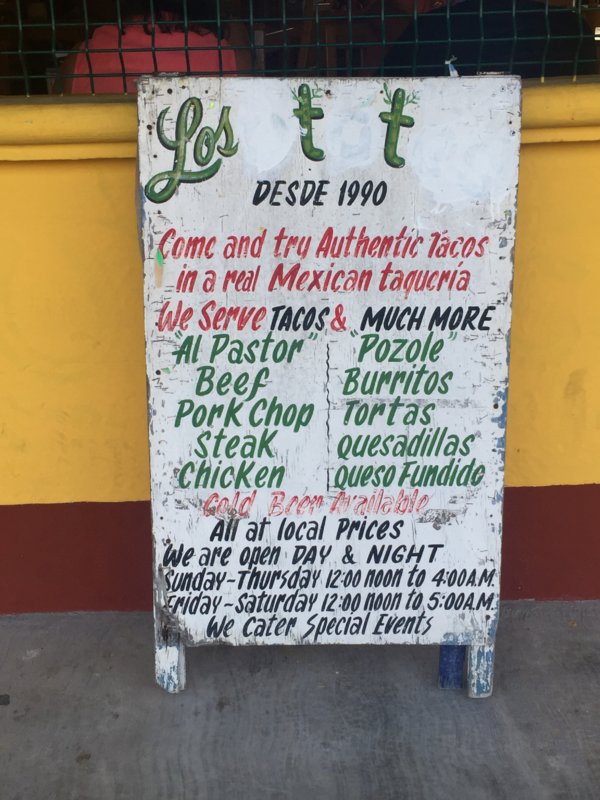 Los t t
DESDE 1990
Come and try Authentic Tacos
in a real Mexican taqueria
We Serve TACOS & MUCH MORE
"Al Pastor" "Pozole"
Beef Burritos
Pork Chop Tortas
Steak Quesadillas
Chicken Queso Fundido
Cold Beer Available
All at local Prices
We are open DAY & NIGHT
Sunday-Thursday 12:00 noon to 4:00 A.M.
Friday-Saturday 12:00 noon to 5:00 A.M.
We Cater Special Events